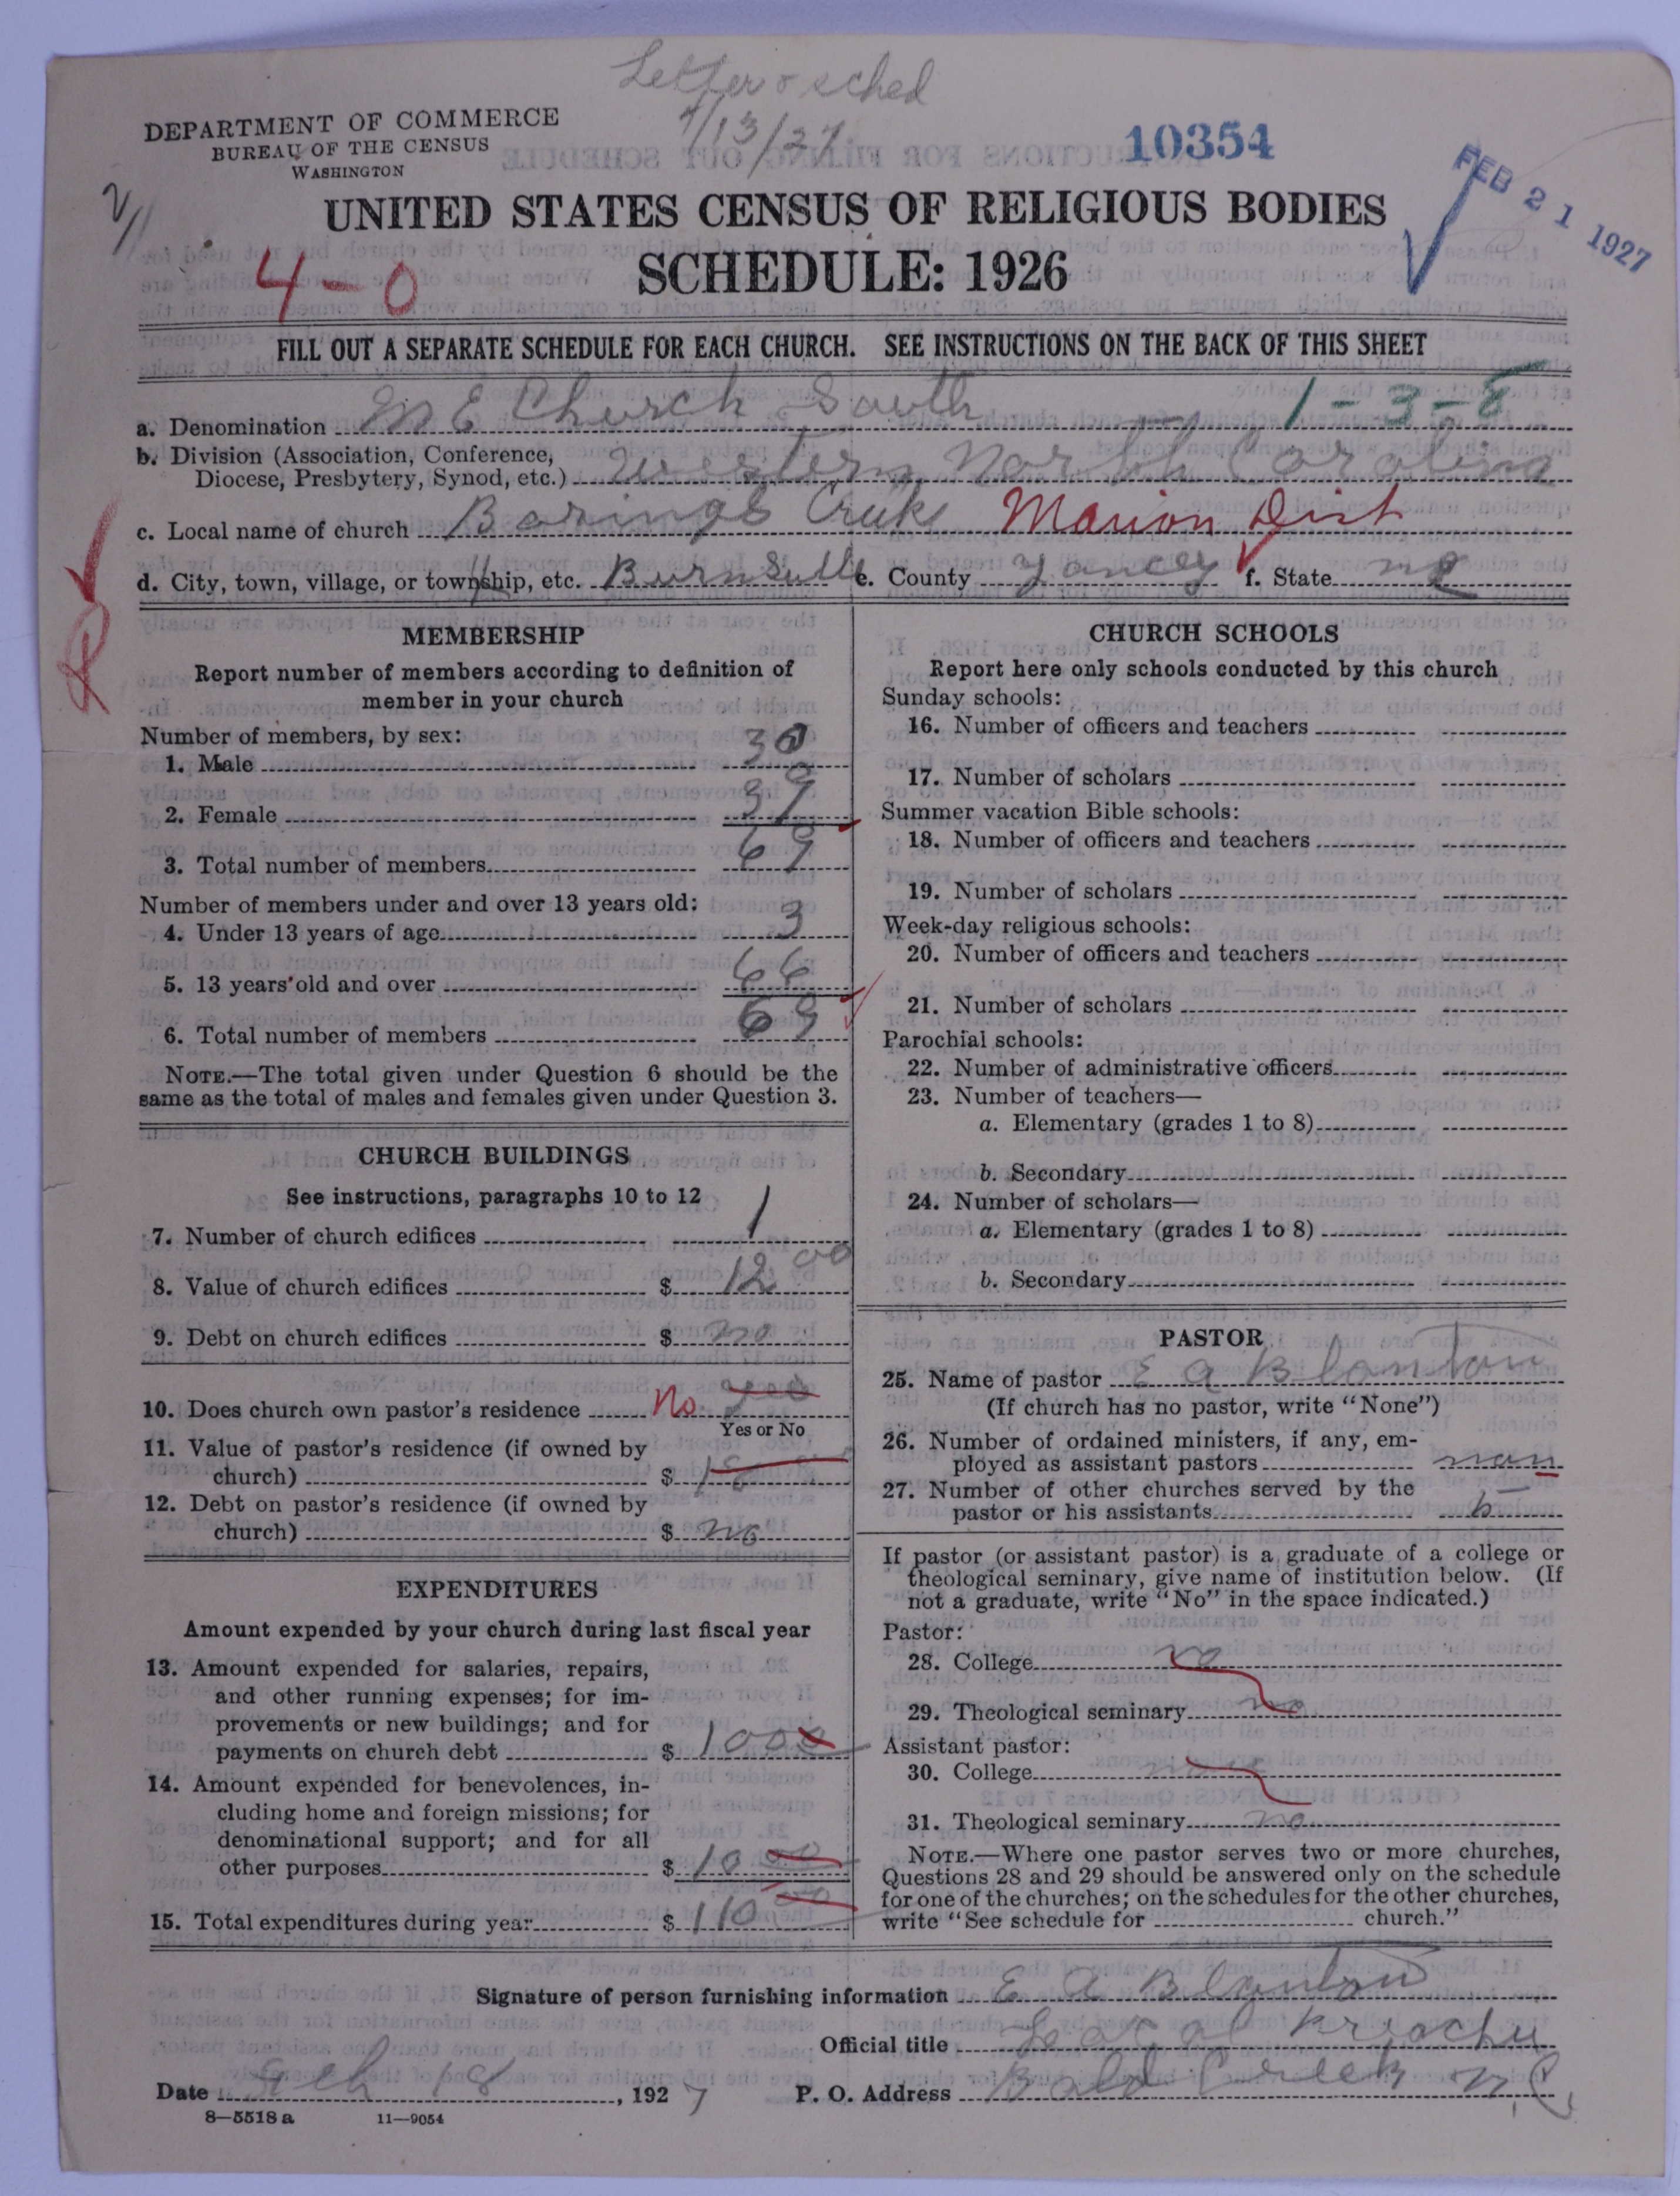 Letter & sched
DEPARTMENT OF COMMERCE
BUREAU OF THE CENSUS
WASHINGTON
10354
FEB 21 1927
UNITED STATES CENSUS OF RELIGIOUS BODIES
4-0
SCHEDULE: 1926
FILL OUT A SEPARATE SCHEDULE FOR EACH CHURCH. SEE INSTRUCTIONS ON THE BACK OF THIS SHEET
1-3-8
a. Denomination M E Church South
b. Division (Association, Conference,
Diocese, Presbytery, Synod, etc.) Western North Carolina
c. Local name of church Marion Dist
d. City, town, village, or township, etc. e. County Yancey f. State NC
MEMBERSHIP
Report number of members according to definition of
member in your church
Number of members, by sex:
1. Male 30
2. Female 39
3. Total number of members 69
Number of members under and over 13 years old:
4. Under 13 years of age 3
5. 13 years old and over 66
6. Total number of members 69
NOTE.—The total given under Question 6 should be the
same as the total of males and females given under Question 3.
CHURCH BUILDINGS
See instructions, paragraphs 10 to 12
7. Number of church edifices 1
8. Value of church edifices $ 1200
9. Debt on church edifices $ no
10. Does church own pastor's residence No yes
Yes or No
11. Value of pastor's residence (if owned by
church) $
12. Debt on pastor's residence (if owned by
church) $ no
EXPENDITURES
Amount expended by your church during last fiscal year
13. Amount expended for salaries, repairs,
and other running expenses; for im-
provements or new buildings; and for
payments on church debt $ 1000
14. Amount expended for benevolences, in-
cluding home and foreign missions; for
denominational support; and for all
other purposes $ 10 00
15. Total expenditures during year $ 110 00
CHURCH SCHOOLS
Report here only schools conducted by this church
Sunday schools:
16. Number of officers and teachers
17. Number of scholars
Summer vacation Bible schools:
18. Number of officers and teachers
19. Number of scholars
Week-day religious schools:
20. Number of officers and teachers
21. Number of scholars
Parochial schools:
22. Number of administrative officers
23. Number of teachers—
a. Elementary (grades 1 to 8)
b. Secondary
24. Number of scholars—
a. Elementary (grades 1 to 8)
b. Secondary
PASTOR
25. Name of pastor E A Blanton
(If church has no pastor, write "None")
26. Number of ordained ministers, if any, em-
ployed as assistant pastors
27. Number of other churches served by the
pastor or his assistants 5
If pastor (or assistant pastor) is a graduate of a college or
theological seminary, give name of institution below. (If
not a graduate, write "No" in the space indicated.)
Pastor:
28. College no
29. Theological seminary no
Assistant pastor:
30. College
31. Theological seminary no
NOTE.—Where one pastor serves two or more churches,
Questions 28 and 29 should be answered only on the schedule
for one of the churches; on the schedules for the other churches,
write "See schedule for church."
Signature of person furnishing information E A Blanton
Official title
Date 18, 1927 P. O. Address Bald Creek N C
8—5518 a 11—9054